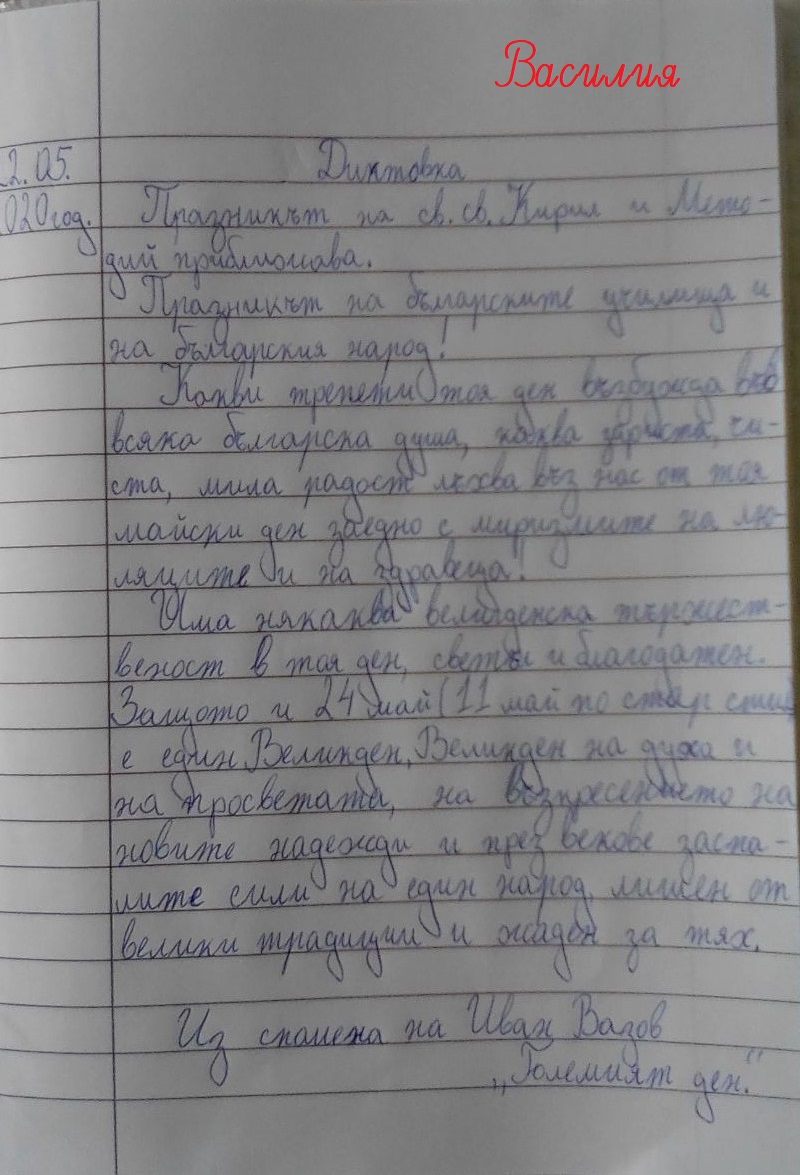 Василия
2.05. Диктовка
020год. Празникът на св. св. Кирил и Мето-
дий приближава.
Празникът на българските училища и
на българския народ!
Какви трепети тоя ден възбужда във
всяка българска душа, каква зариста, чи-
ста, мила радост лъхва въз нас от тоя
майски ден заедно с миризмите на лю-
ляците и на здравеца!
Има някаква великденска тържест-
веност в тоя ден, светъл и благодатен.
Защото и 24 май (11 май по стар стил)
е един Великден, Великден на духа и
на просветата, на възкресението на
новите надежди и през векове заспа-
лите сили на един народ, лишен от
велики традиции и жаден за тях.
Из спомена на Иван Вазов
„Големият ден."